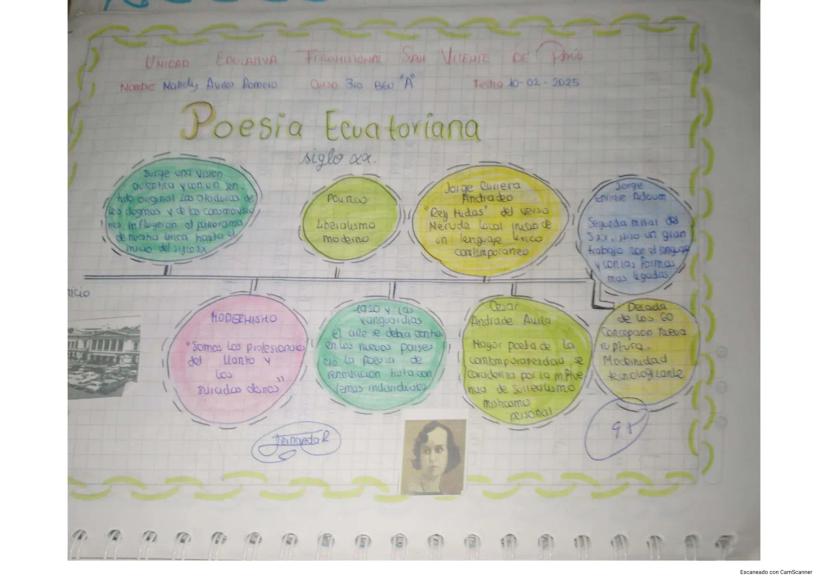 Unidad Educativa Fiscomisional San Vicente de Paúl
Nombre Nahdy Aviles Romero Curso 3ro BGU "A" Fecha 10-02-2025
Poesia Ecuatoriana
siglo xx.
Surge una vision
autentica y con un sen
tido original las ataduras de
los dogmas y de las
influyeron el panorama
de nuestra lirica hasta el
inicio del siglo xx
Liberalismo
moderno
Jorge Carrera
Andradeo
"Rey Midas" del verso
Neruda local inicio de
un lenguaje lirico
contemporaneo
Jorge
Enrique Adoum
Segunda mitad del
S xx, hizo un gran
trabajo con el lenguaje
y con las formas
mas legadas
MODERNISMO
"Somos los profesionales
del llanto y
los
suicidas"
1920 y las
vanguardias
el arte se debia contra
en los nuevos paises
la poesia de
trata con
temas individuales
Cesar
Andrade Avila
Mayor poeta de la
contemporaneidad se
caracteriza por la
de surrealismo
personal
Decada
de los 60
Concepcion nueva
ruptura.
Modernidad
Fernanda R
Escaneado con CamScanner